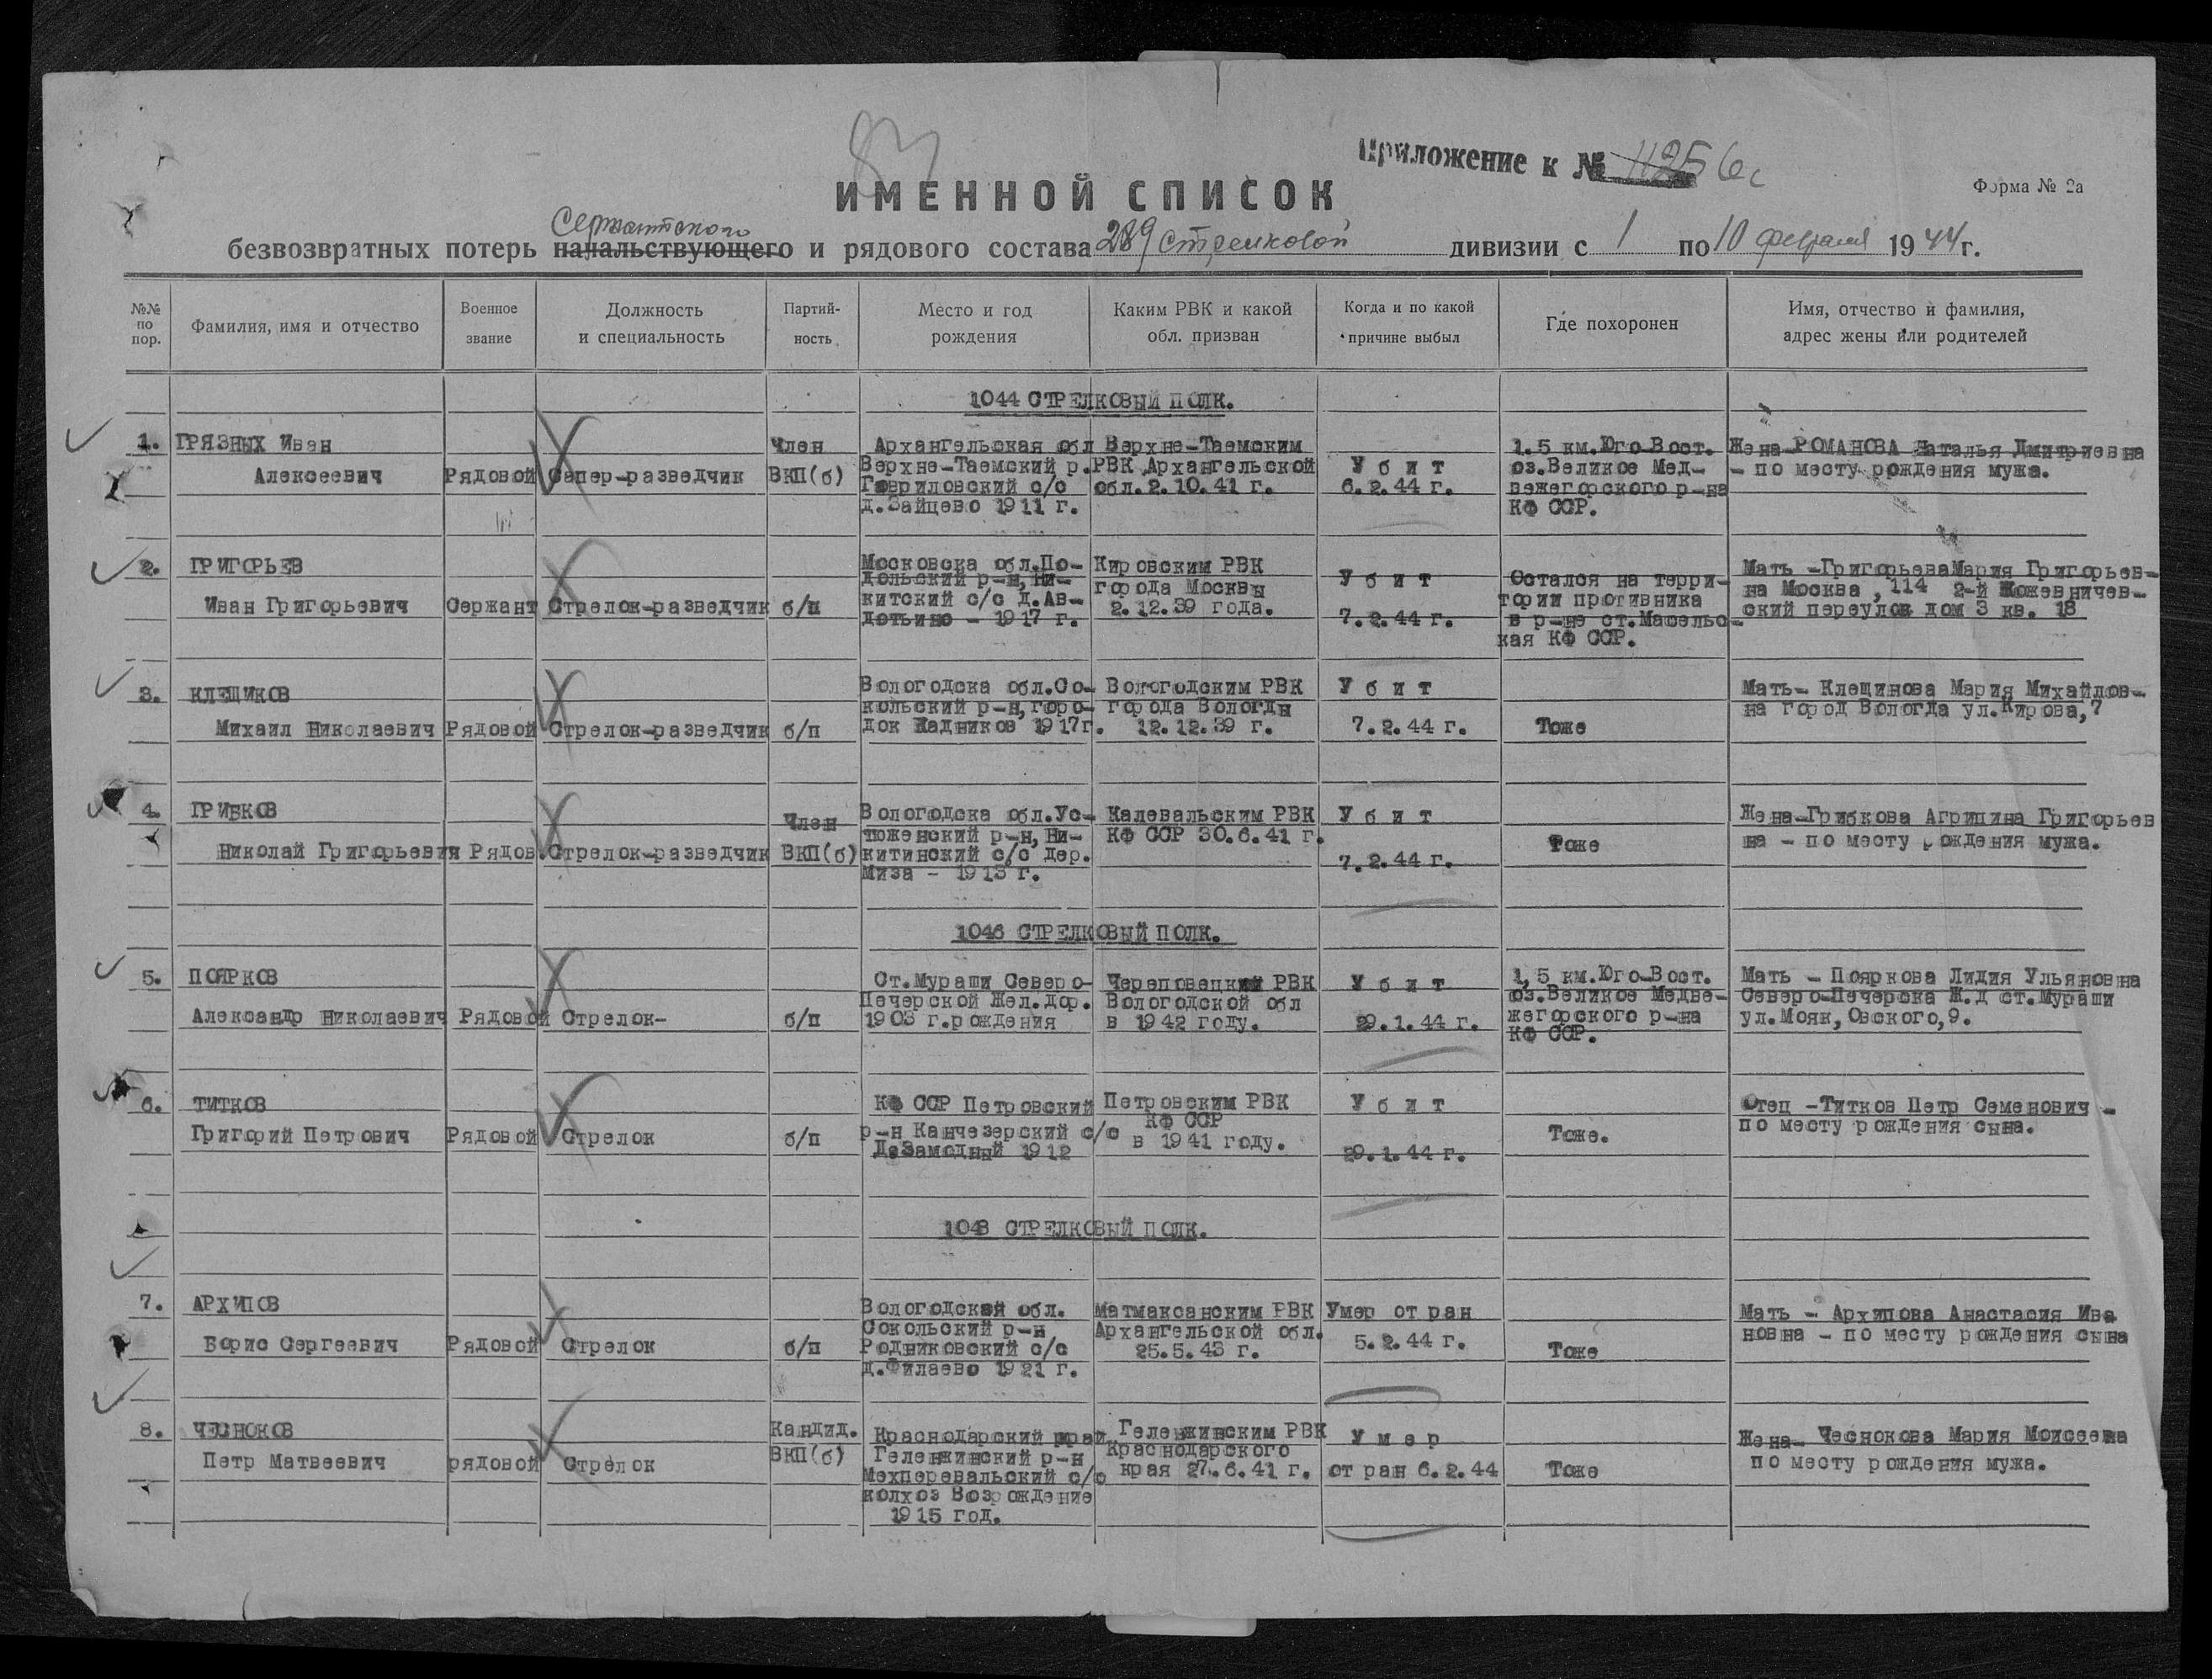 83
Приложение к № 11256с
ИМЕННОЙ СПИСОК
Форма № 2а
Сержантского
безвозвратных потерь начальствующего и рядового состава 289 стрелковой дивизии с 1 по 10 февраля 1944 г.
№№ по пор.
Фамилия, имя и отчество
Военное звание
Должность и специальность
Партий-ность
Место и год рождения
Каким РВК и какой обл. призван
Когда и по какой причине выбыл
Где похоронен
Имя, отчество и фамилия, адрес жены или родителей
1044 СТРЕЛКОВЫЙ ПОЛК.
1. ГРЯЗНЫХ Иван
Алексеевич
Рядовой
Сапер-разведчик
Член
ВКП(б)
Архангельская обл
Верхне-Таемский р.
Гавриловский с/с
д.Зайцево 1911 г.
Верхне-Таемским
РВК Архангельской
обл.2.10.41 г.
Убит
6.2.44 г.
1.5 км.Юго-Вост.
оз.Великое Мед-
вежегорского р-на
КФ ССР.
Жена-РОМАНОВА Наталья Дмитриевна
- по месту рождения мужа.
2. ГРИГОРЬЕВ
Иван Григорьевич
Сержант
Стрелок-разведчик
б/п
Московска обл.По-
дольский р-н, Ни-
китский с/с д.Ав-
дотьино - 1917 г.
Кировским РВК
города Москвы
2.12.39 года.
Убит
7.2.44 г.
Остался на терри-
тории противника
в р-не ст.Масельс-
кая КФ ССР.
Мать -ГригорьеваМария Григорьев-
на Москва ,114 2-й Кожевничев-
ский переулок дом 3 кв. 18
3. КЛЕЩИКОВ
Михаил Николаевич
Рядовой
Стрелок-разведчик
б/п
Вологодска обл.Со-
кольский р-н, горо-
док Кадников 1917г.
Вологодским РВК
города Вологды
12.12.39 г.
Убит
7.2.44 г.
Тоже
Мать- Клещинова Мария Михайлов-
на город Вологда ул.Кирова,7
4. ГРИБКОВ
Николай Григорьевич
Рядов.
Стрелок-разведчик
Член
ВКП(б)
Вологодска обл.Ус-
тюженский р-н, Ни-
китинский с/с Дер.
Миза - 1913 г.
Калевальским РВК
КФ ССР 30.6.41 г.
Убит
7.2.44 г.
Тоже
Жена-Грибкова Агрипина Григорьев
на - по месту рождения мужа.
1046 СТРЕЛКОВЫЙ ПОЛК.
5. ПОЯРКОВ
Александр Николаевич
Рядовой
Стрелок-
б/п
Ст.Мураши Северо-
Печерской Жел.Дор.
1903 г.рождения
Череповецкий РВК
Вологодской обл
в 1942 году.
Убит
29.1.44 г.
1,5 км.Юго-Вост.
оз.Великое Медве-
жегорского р-на
КФ ССР.
Мать - Пояркова Лидия Ульяновна
Северо-Печерска Ж.д ст.Мураши
ул.Мояк,Овского,9.
6. ТИТКОВ
Григорий Петрович
Рядовой
Стрелок
б/п
КФ ССР Петровский
р-нКанчезерский с/с
1912
Петровским РВК
КФ ССР
в 1941 году.
Убит
29.1.44 г.
Тоже.
Отец -Титков Петр Семенович -
по месту рождения сына.
1048 СТРЕЛКОВЫЙ ПОЛК.
7. АРХИПОВ
Борис Сергеевич
Рядовой
Стрелок
б/п
Вологодская обл.
Сокольский р-н
Родниковский с/с
д.Филаево 1921 г.
Матмаксанским РВК
Архангельской обл.
25.5.43 г.
Умер от ран
5.2.44 г.
Тоже
Мать - Архипова Анастасия Ива
новна - по месту рождения сына
8. ЧЕСНОКОВ
Петр Матвеевич
рядовой
Стрелок
Кандид.
ВКП(б)
Краснодарский край
Геленжинский р-н
Мехперевальский с/с
колхоз Возрождение
1915 год.
Геленжинским РВК
Краснодарского
края 27.6.41 г.
Умер
от ран 6.2.44
Тоже
Жена- Чеснокова Мария Моисеевна
по месту рождения мужа.